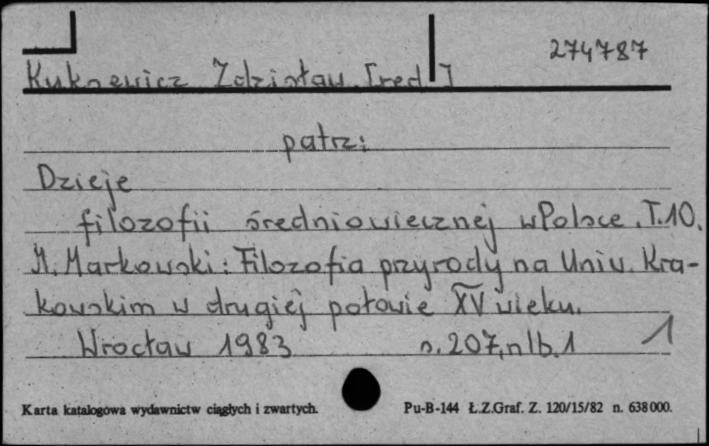 274787
Kuksewicz Zdzisław [red.]
patrz:
Dzieje
filozofii średniowiecznej w Polsce. T.10.
M. Markowski: Filozofia przyrody na Uniw. Kra-
kowskim w drugiej połowie XV wieku.
Wrocław 1983 s. 207, nlb. 1
1
Karta katalogowa wydawnictw ciągłych i zwartych. Pu-B-144 Ł.Z.Graf. Z. 120/15/82 n. 638000.